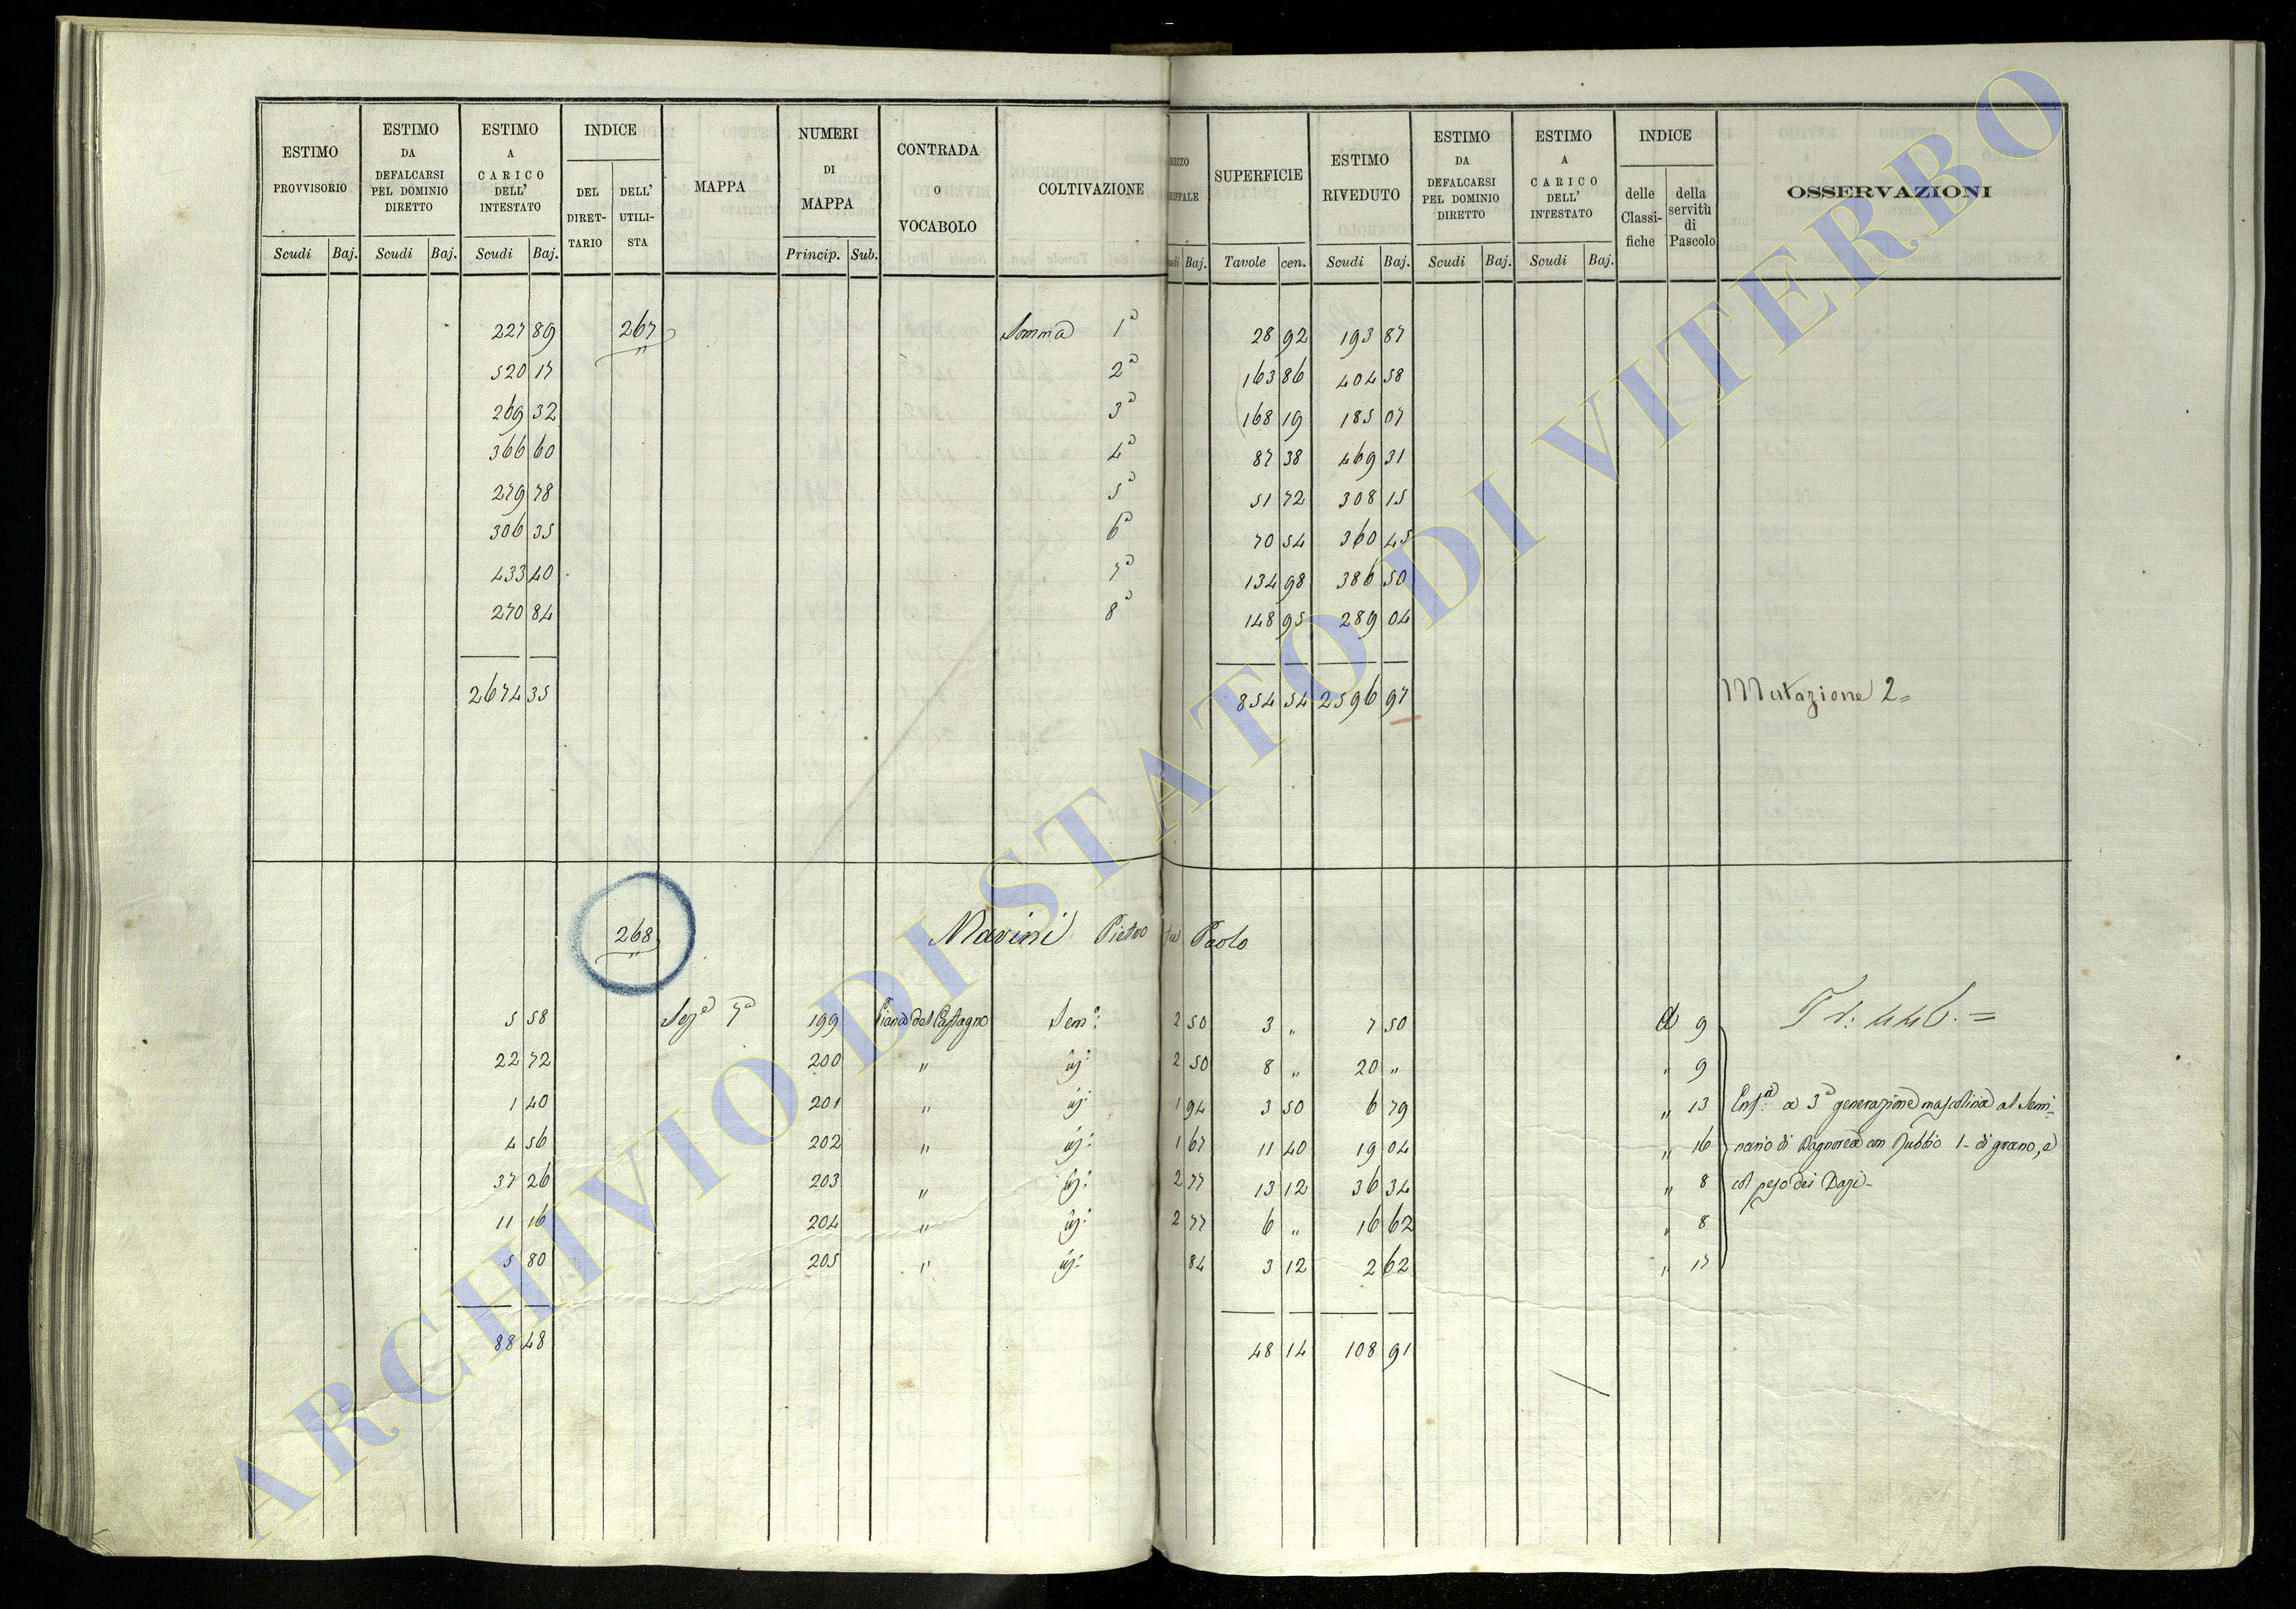 ESTIMO PROVVISORIO
Scudi Baj.
ESTIMO DA DEFALCARSI PEL DOMINIO DIRETTO
Scudi Baj.
ESTIMO A CARICO DELL' INTESTATO
Scudi Baj.
INDICE
DEL DIRET-TARIO
DELL' UTILI-STA
MAPPA
NUMERI DI MAPPA
Princip. Sub.
CONTRADA O VOCABOLO
COLTIVAZIONE
Baj.
SUPERFICIE
Tavole cen.
ESTIMO RIVEDUTO
Scudi Baj.
ESTIMO DA DEFALCARSI PEL DOMINIO DIRETTO
Scudi Baj.
ESTIMO A CARICO DELL' INTESTATO
Scudi Baj.
INDICE
delle Classi-fiche
della servitù di Pascolo
OSSERVAZIONI
227 89 267 Somma 1ª 28 92 193 87
520 17 2ª 163 86 404 58
269 32 3ª 168 19 185 07
366 60 4ª 87 38 469 31
279 78 5ª 51 72 308 15
306 35 6ª 70 54 360 45
433 40 7ª 134 98 386 50
270 84 8ª 148 95 289 04
2674 35 854 54 2596 97 Mutazione 2=
268 Marini Pietro fu Paolo
5 58 Sezª 7ª 199 Piano del Castagno Sem: 2 50 3 " 7 50 a 9
22 72 200 " 2 50 8 " 20 " " 9
1 40 201 " 1 94 3 50 6 79 " 13
4 56 202 " 1 67 11 40 19 04 " 16
37 26 203 " 2 77 13 12 36 34 " 8
11 16 204 " 2 77 6 " 16 62 " 8
5 80 205 " 84 3 12 2 62 " 17
88 48 48 14 108 91
a 3ª generazione mascolina al Semi-
nario di Bagnorea con Rubbio 1- di grano, e
col peso dei Dazi-
ARCHIVIO DI STATO DI VITERBO